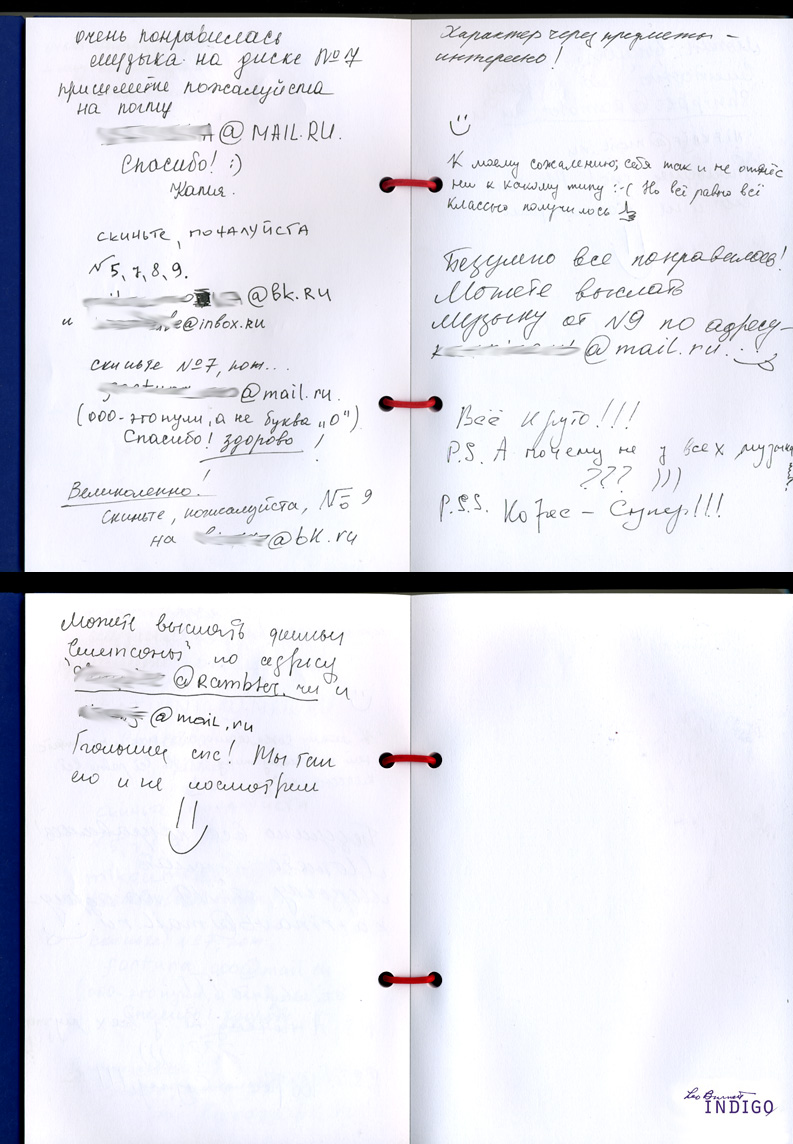 очень понравилась
музыка на диске №7
пришлите пожалуйста
на почту
A@MAIL.RU.
Спасибо! :)
Капия.
скиньте, пожалуйста
N 5, 7, 8, 9.
@bk.RU
и e@inbox.ru
скиньте №7, пож...
@mail.ru.
(000-это нули, а не буква "О")
Спасибо! здорово!
Великолепно!
Скиньте, пожалуйста, № 9
на @bk.ru
Характер через предметы -
интересно!
К моему сожалению, себя так и не отнёс
ни к какому типу :-( Но всё равно всё
классно получилось
Безумно все понравилось!
Можете выслать
музыку от N9 по адресу-
@mail.ru...
Всё круто!!!
P.S. А почему не у всех музыка
??? )))
P.S.S. Корес - Супер!!!
Можете выслать фильм
по адресу
@Rambler.ru и
@mail.ru
Большое спс! Мы так
его и не посмотрели
Leo Burnett
INDIGO